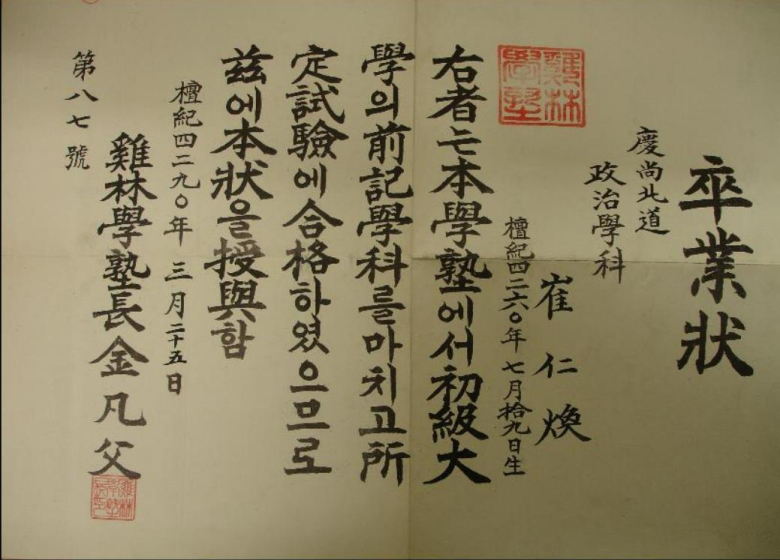 卒業狀
慶尚北道
政治學科
崔仁煥
檀紀四二六〇年七月拾九日生
雞林學塾
右者는本學塾에서初級大
學의前記學科를마치고所
定試驗에合格하였으므로
玆에本狀을授與함
檀紀四二九〇年三月二十五日
雞林學塾長金凡父
第八七號